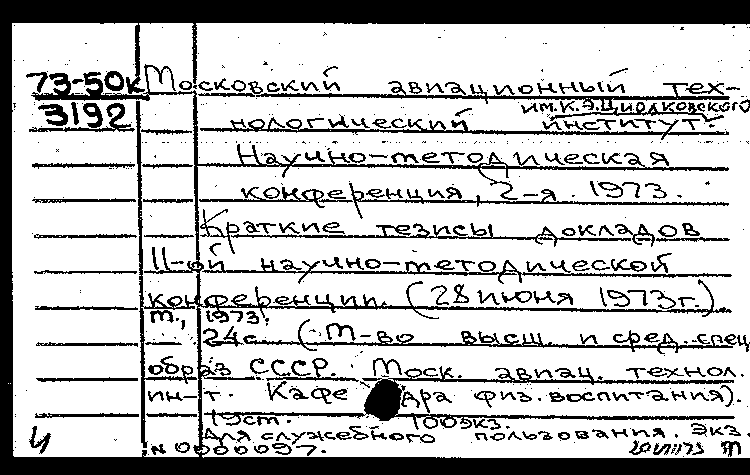 73-50к Московский авиационный тех-
3192
им. К.Э.Циолковского
нологический институт.
Научно-методическая
конференция, 2-я. 1973.
Краткие тезисы докладов
II-ой научно-методической
конференции. (28 июня 1973г.)
М., 1973.
24с. (М-во высш. и сред. спец
образ СССР. Моск. авиац. технол.
ин-т. Кафедра физ. воспитания).
100экз.
Для служебного пользования. Экз.
№ 0000097.